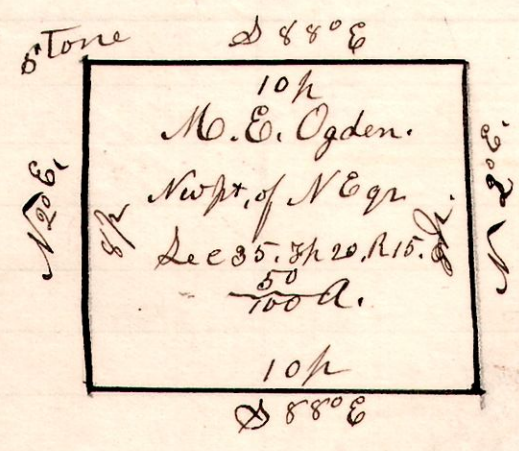 Stone
S 88° E
10 p
M. E. Ogden.
N 2° E,
N 2° E,
Nw pt, of N E qr
8 p
8 p.
Sec 35. Tp 20, R 15.
50/100 A.
10 p
S 88° E